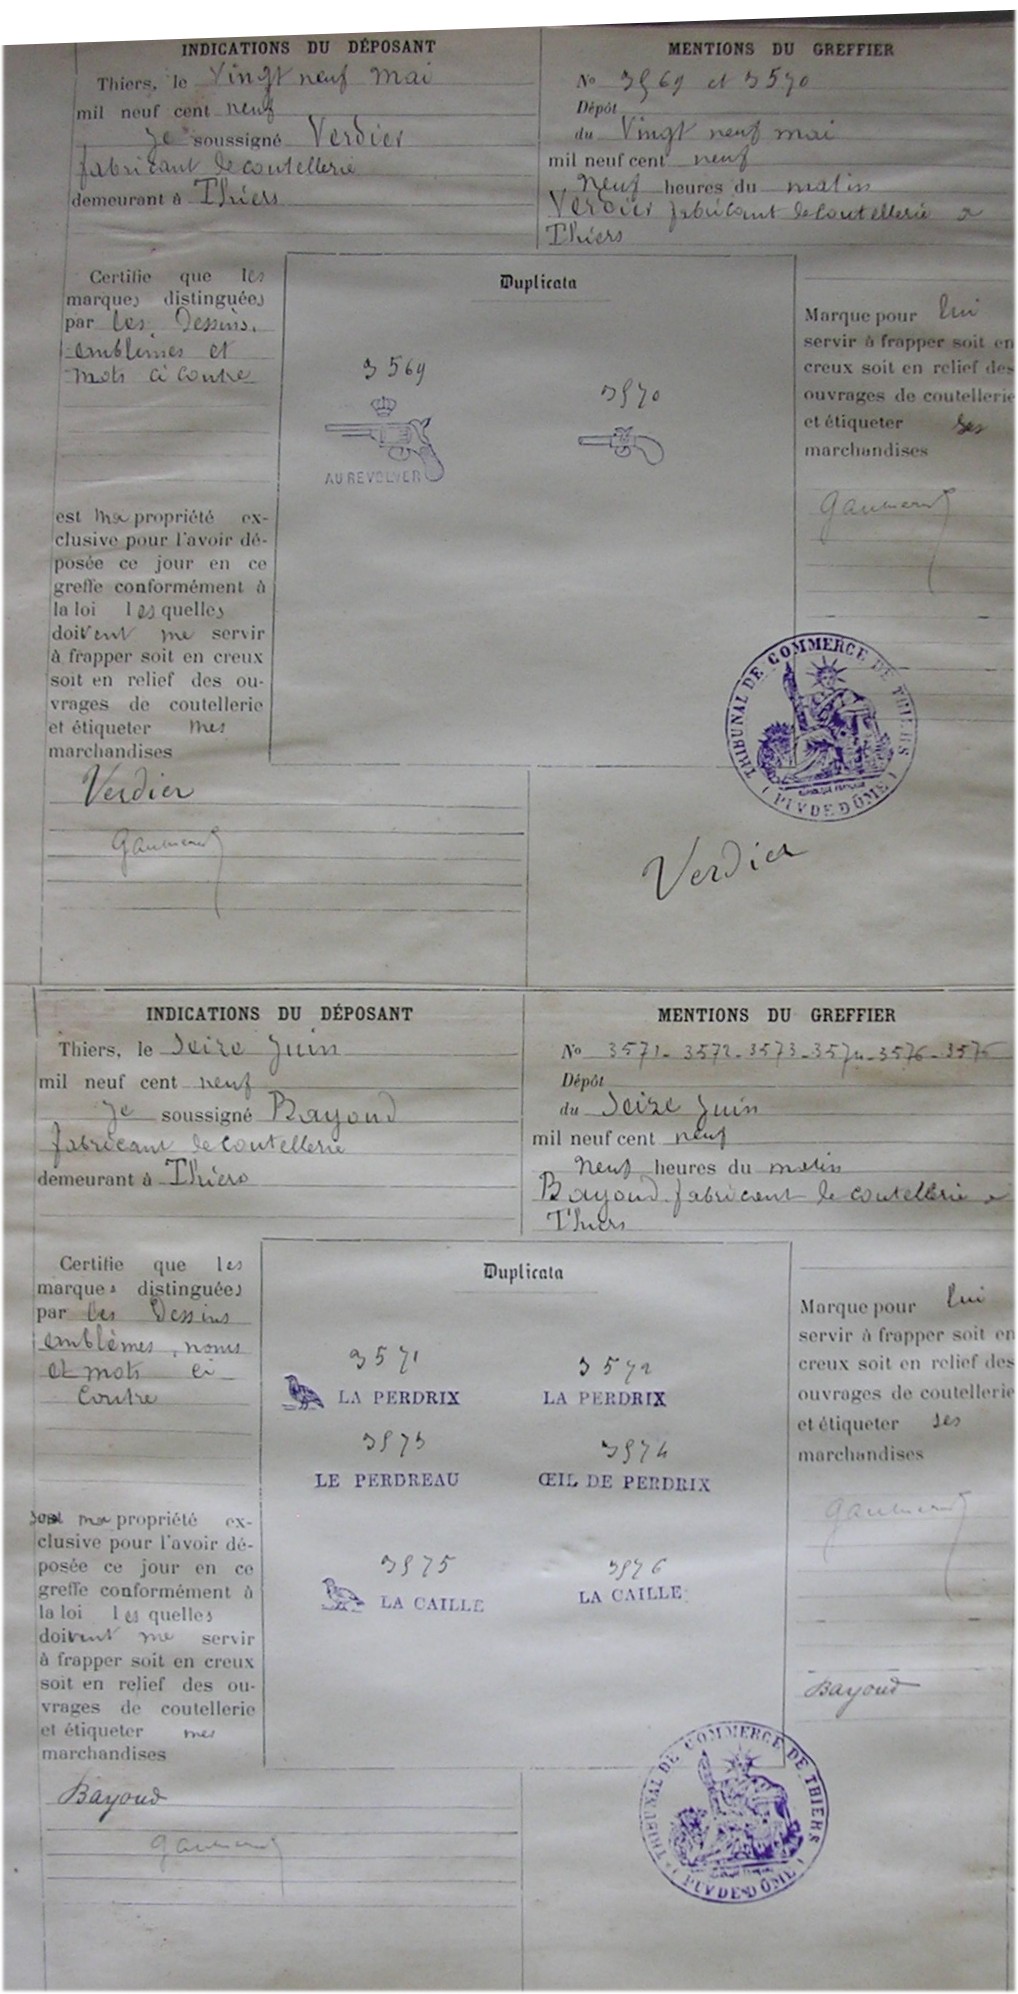 INDICATIONS DU DÉPOSANT
Thiers, le Vingt neuf mai
mil neuf cent neuf
Je soussigné Verdier
fabricant de coutellerie
demeurant à Thiers
MENTIONS DU GREFFIER
No 3569 et 3570
Dépôt
du Vingt neuf mai
mil neuf cent neuf
Neuf heures du matin
Verdier fabricant de coutellerie a
Thiers
Certifie que les
marques distinguées
par les Dessins,
emblèmes et
mots ci contre
est ma propriété ex-
clusive pour l'avoir dé-
posée ce jour en ce
greffe conformément à
la loi lesquelles
doivent me servir
à frapper soit en creux
soit en relief des ou-
vrages de coutellerie
et étiqueter mes
marchandises
Verdier
Duplicata
3569
3570
AU REVOLVER
Marque pour lui
servir à frapper soit en
creux soit en relief des
ouvrages de coutellerie
et étiqueter ses
marchandises
TRIBUNAL DE COMMERCE DE THIERS
RÉPUBLIQUE FRANÇAISE
( PUY DE DÔME )
Verdier
INDICATIONS DU DÉPOSANT
Thiers, le Seize Juin
mil neuf cent neuf
Je soussigné Bayoud
fabricant de coutellerie
demeurant à Thiers
MENTIONS DU GREFFIER
No 3571-3572-3573-3574-3576-3575
Dépôt
du Seize Juin
mil neuf cent neuf
Neuf heures du matin
Bayoud fabricant de coutellerie a
Thiers
Certifie que les
marques distinguées
par les Dessins
emblèmes, noms
et mots ci
Contre
sont ma propriété ex-
clusive pour l'avoir dé-
posée ce jour en ce
greffe conformément à
la loi lesquelles
doivent me servir
à frapper soit en creux
soit en relief des ou-
vrages de coutellerie
et étiqueter mes
marchandises
Bayoud
Duplicata
3571
3572
LA PERDRIX
LA PERDRIX
3573
3574
LE PERDREAU
ŒIL DE PERDRIX
3575
3576
LA CAILLE
LA CAILLE
Marque pour lui
servir à frapper soit en
creux soit en relief des
ouvrages de coutellerie
et étiqueter ses
marchandises
Bayoud
TRIBUNAL DE COMMERCE DE THIERS
( PUY DE DÔME )